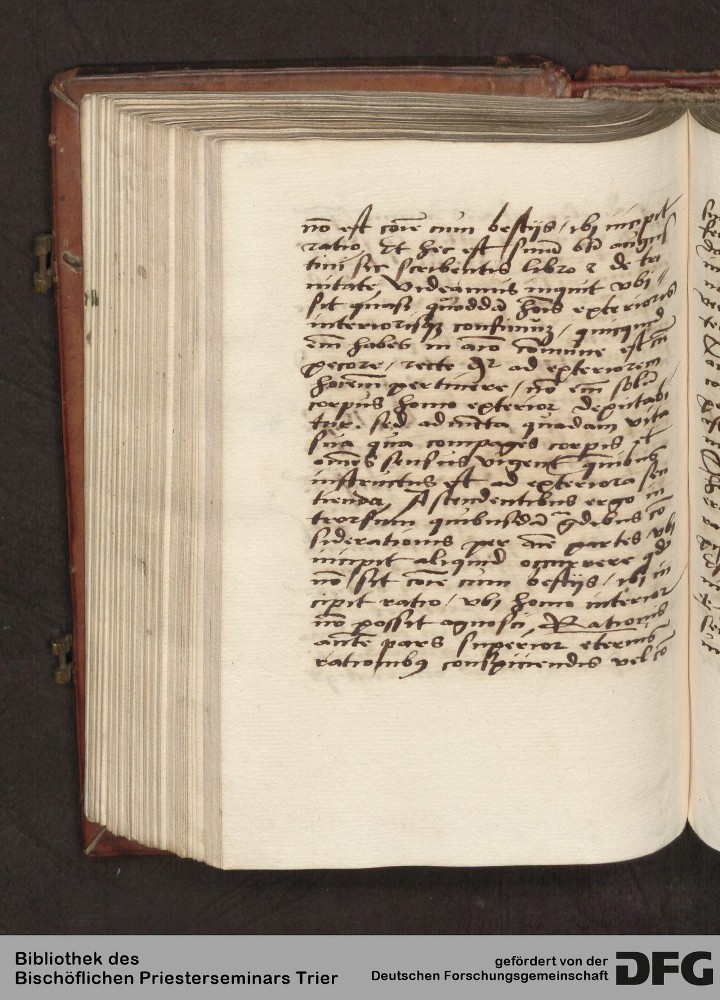 nō est cōīe cum bestijs / ibi incipit
ratio. Et hec est sn̄ia btī augus
tini sic scribentis libro 2 de tri
nitate. Videamus inquit vbi
sit quasi quoddā hoīs exterioris
interiorisqʒ confiniuʒ / quicquid
em̄ habeꝰ in aīo cōmune est cū
pecore / recte dr̄ ad exteriorem
hoīem pertinere / nō em̄ solū
corpus homo exterior deputabi
tur. sed adiūcta quadam vita
sua qua compages corpis et
om̄es sensus vigent quibus
instructus est ad exteriora sen
tienda. Ascendentibus ergo in
trorsum quibusdā gͣdibus cō
siderationis per aīe partes vbi
incipit aliquid occurrere qd
nō sit cōīe cum bestijs / ibi in
cipit ratio / vbi homo interior
nō possit agnosci. Rationis
autē pars superior eternis
rationibꝰ conspiciendis vel cō
Bibliothek des
Bischöflichen Priesterseminars Trier
gefördert von der
Deutschen Forschungsgemeinschaft
DFG